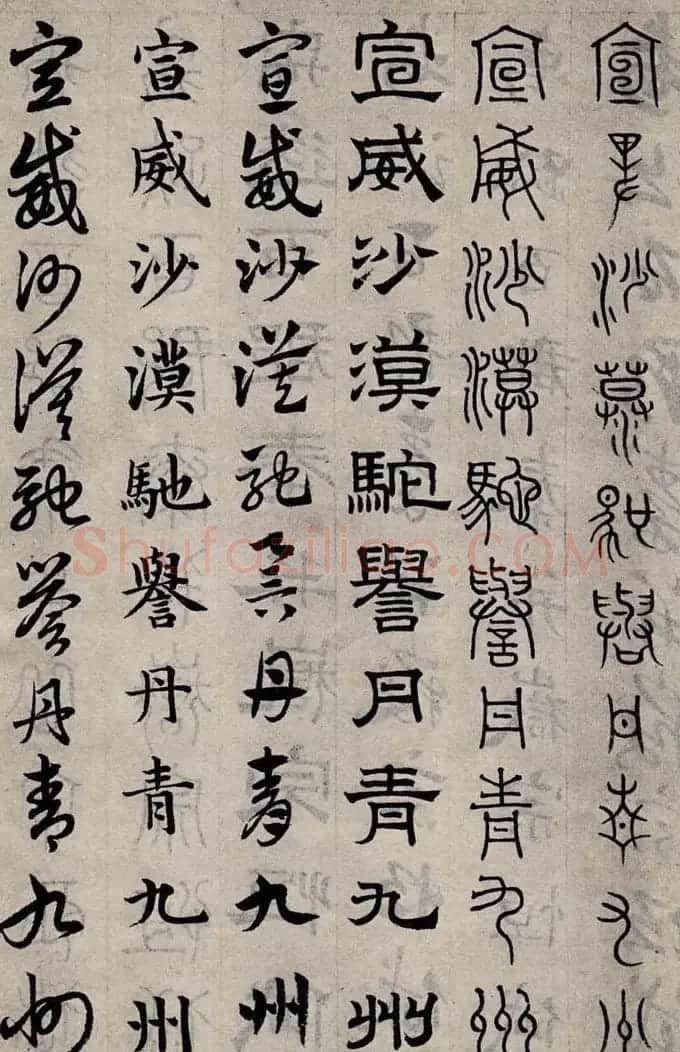 宣威沙漠馳譽丹青九州
宣威沙漠馳譽丹青九州
宣威沙漠駝譽丹青九州
宣威沙漠馳譽丹青九州
宣威沙漠馳譽丹青九州
宣威沙漠馳譽丹青九州
Shufaziliao.COM